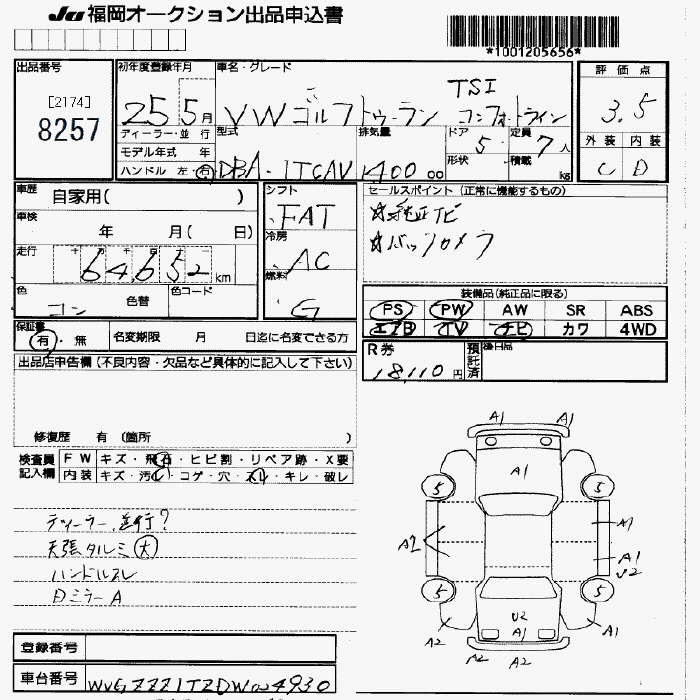 JU 福岡オークション出品申込書
*1001205656*
出品番号
[2174]
8257
初年度登録年月
25 5月
車名・グレード
VW ゴルフトゥーラン TSI コンフォートライン
評価点
3.5
外装 内装
C D
ディーラー・並 行
モデル年式 年
ハンドル 左・右
型式
DBA-1TCAV
排気量
1400 cc
ドア
5
形状
定員
7人
積載
kg
車歴 自家用( )
車検
年 月( 日)
走行
64652 km
色
コン
色替
色コード
シフト
FAT
冷房
AC
燃料
G
セールスポイント (正常に機能するもの)
☆純正ナビ
☆バックカメラ
装備品(純正品に限る)
PS PW AW SR ABS
エアB TV ナビ カワ 4WD
保証書
有・無
名変期限 月 日迄に名変できる方
R券
18,110円
預託済
後日品
出品店申告欄 (不良内容・欠品など具体的に記入して下さい)
修復歴 有 (箇所 )
検査員記入欄
FW キズ・飛石・ヒビ割・リペア跡・X要
内装 キズ・汚レ・コゲ・穴・スレ・キレ・破レ
ディーラー、並行?
天張タルミ(大)
ハンドルスレ
Dミラー A
A1 A1
A1
5 5
A2
A1
A1
U2
5 5
U2
A1
A2 A1
A2 A2
登録番号
車台番号
WVGZZZ1TZDW024930